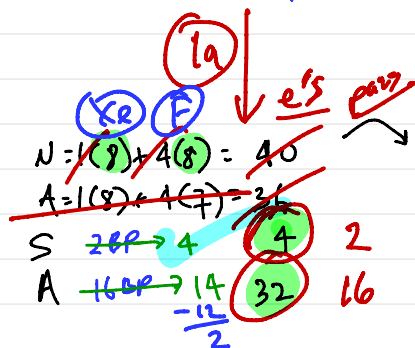 1a
Xe F e's pairs
N = 1(8) + 4(8) = 40
A = 1(8) + 4(7) = 36
S 2BP → 4 4 2
A 16BP → 14 32 16
-12
2